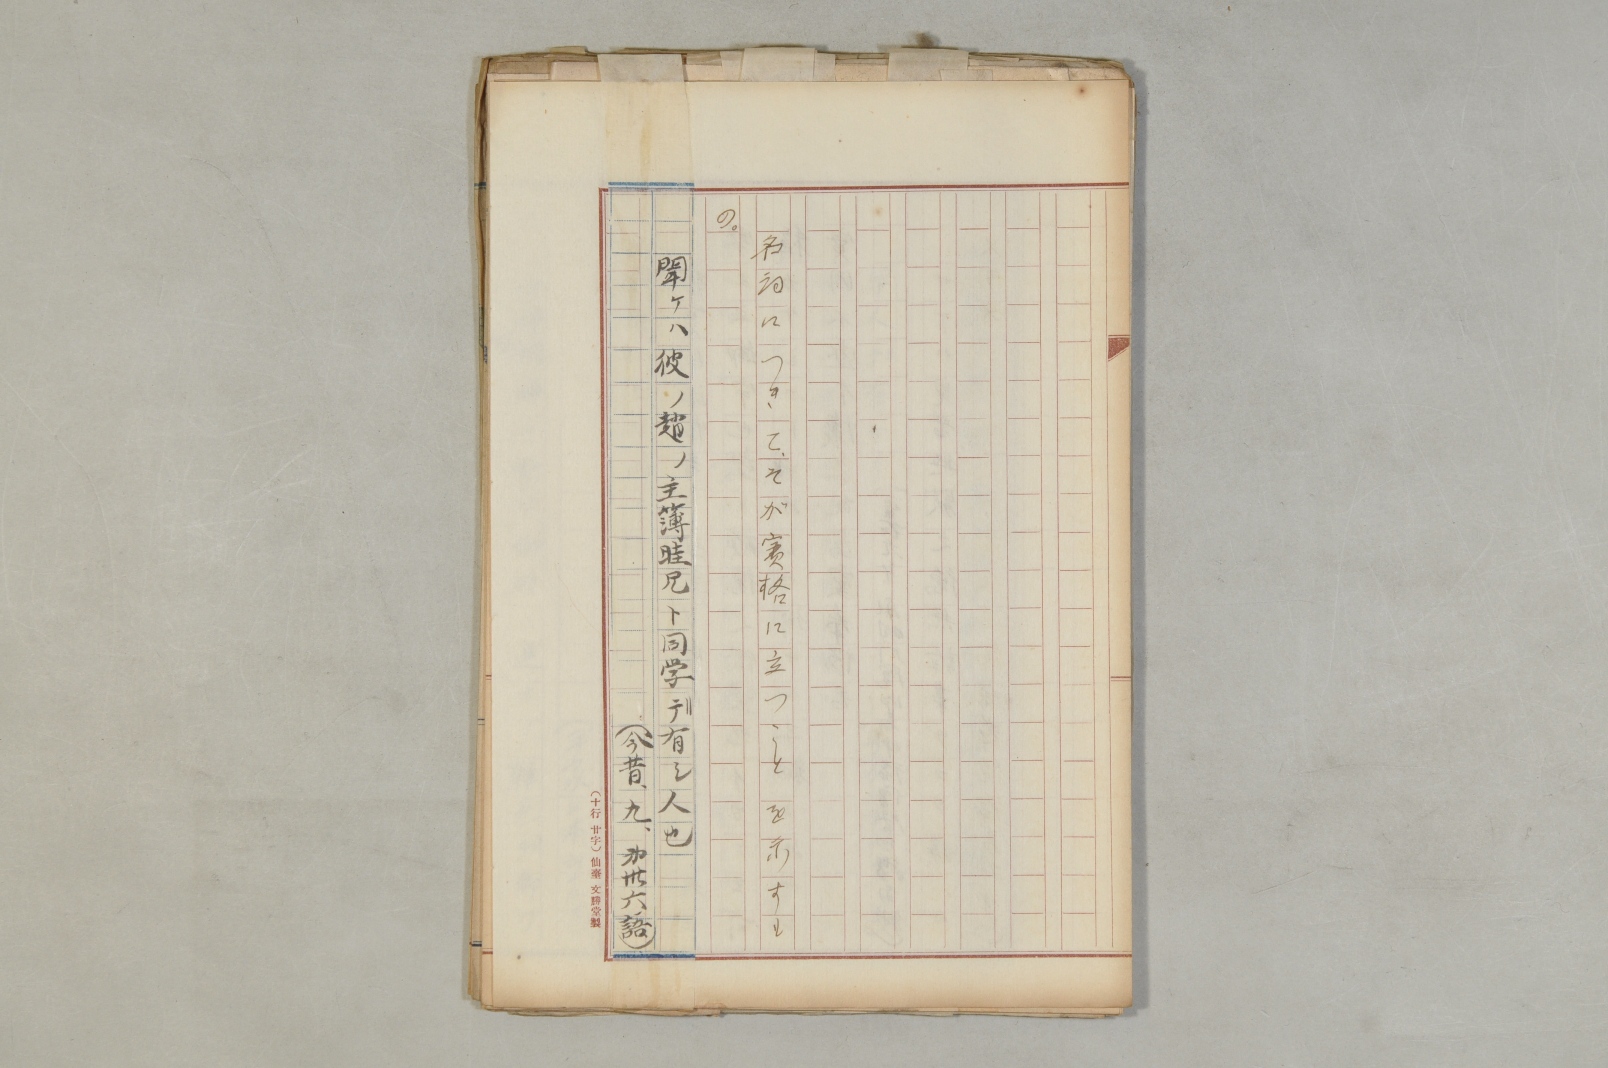 名詞につきて、そが賓格に立つことを示すも
の。
聞ケハ彼ノ趙ノ主簿眭兄ト同学デ有シ人也
(今昔、九、第卅六語)
(十行 廿字) 仙臺 文勝堂製